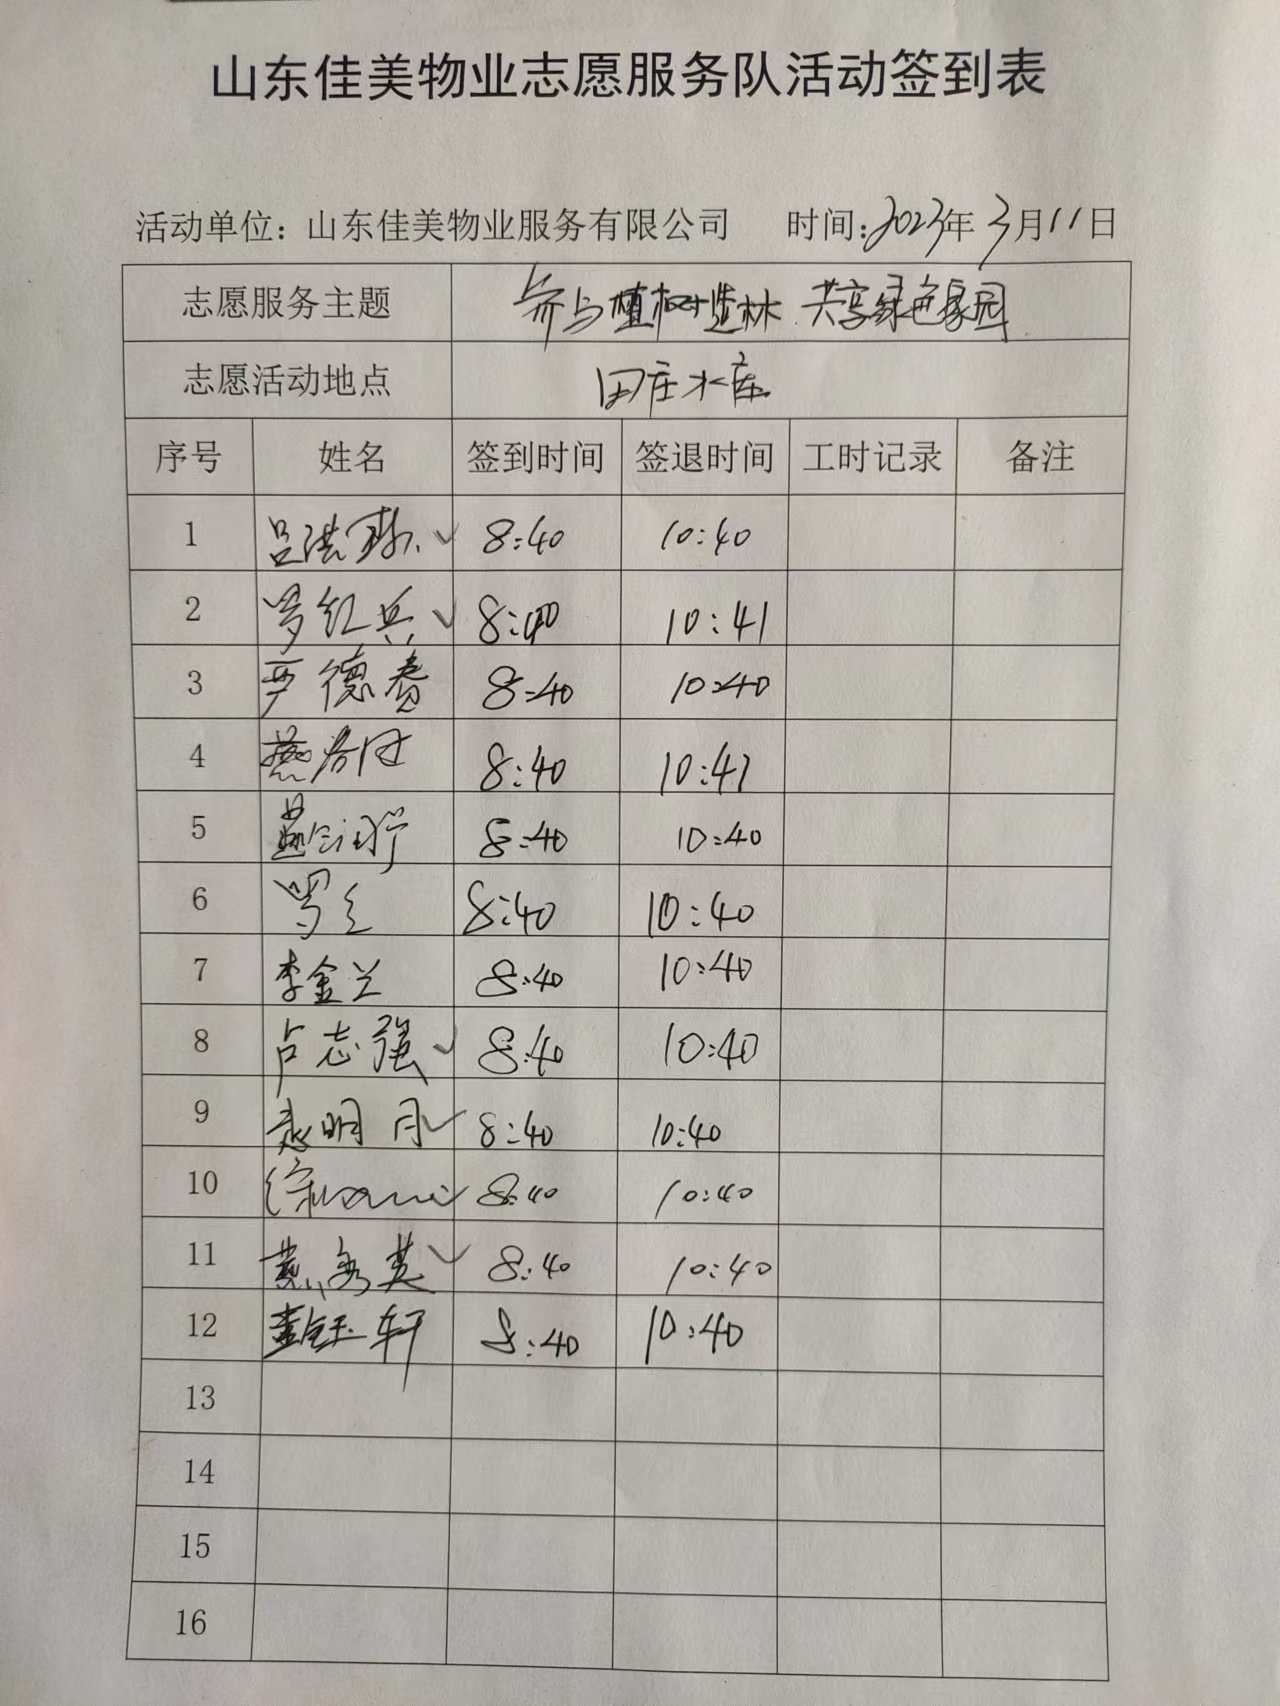 山东佳美物业志愿服务队活动签到表
活动单位：山东佳美物业服务有限公司 时间：2023年3月11日
志愿服务主题 参与植树造林 共享绿色家园
志愿活动地点 田庄水库
序号 姓名 签到时间 签退时间 工时记录 备注
1 吕洪 8:40 10:40
2 罗红兵 8:40 10:41
3 严德春 8:40 10:40
4 燕 8:40 10:41
5 8:40 10:40
6 8:40 10:40
7 李金兰 8:40 10:40
8 占志强 8:40 10:40
9 明月 8:40 10:40
10 徐 8:40 10:40
11 燕秀英 8:40 10:40
12 轩 8:40 10:40
13
14
15
16